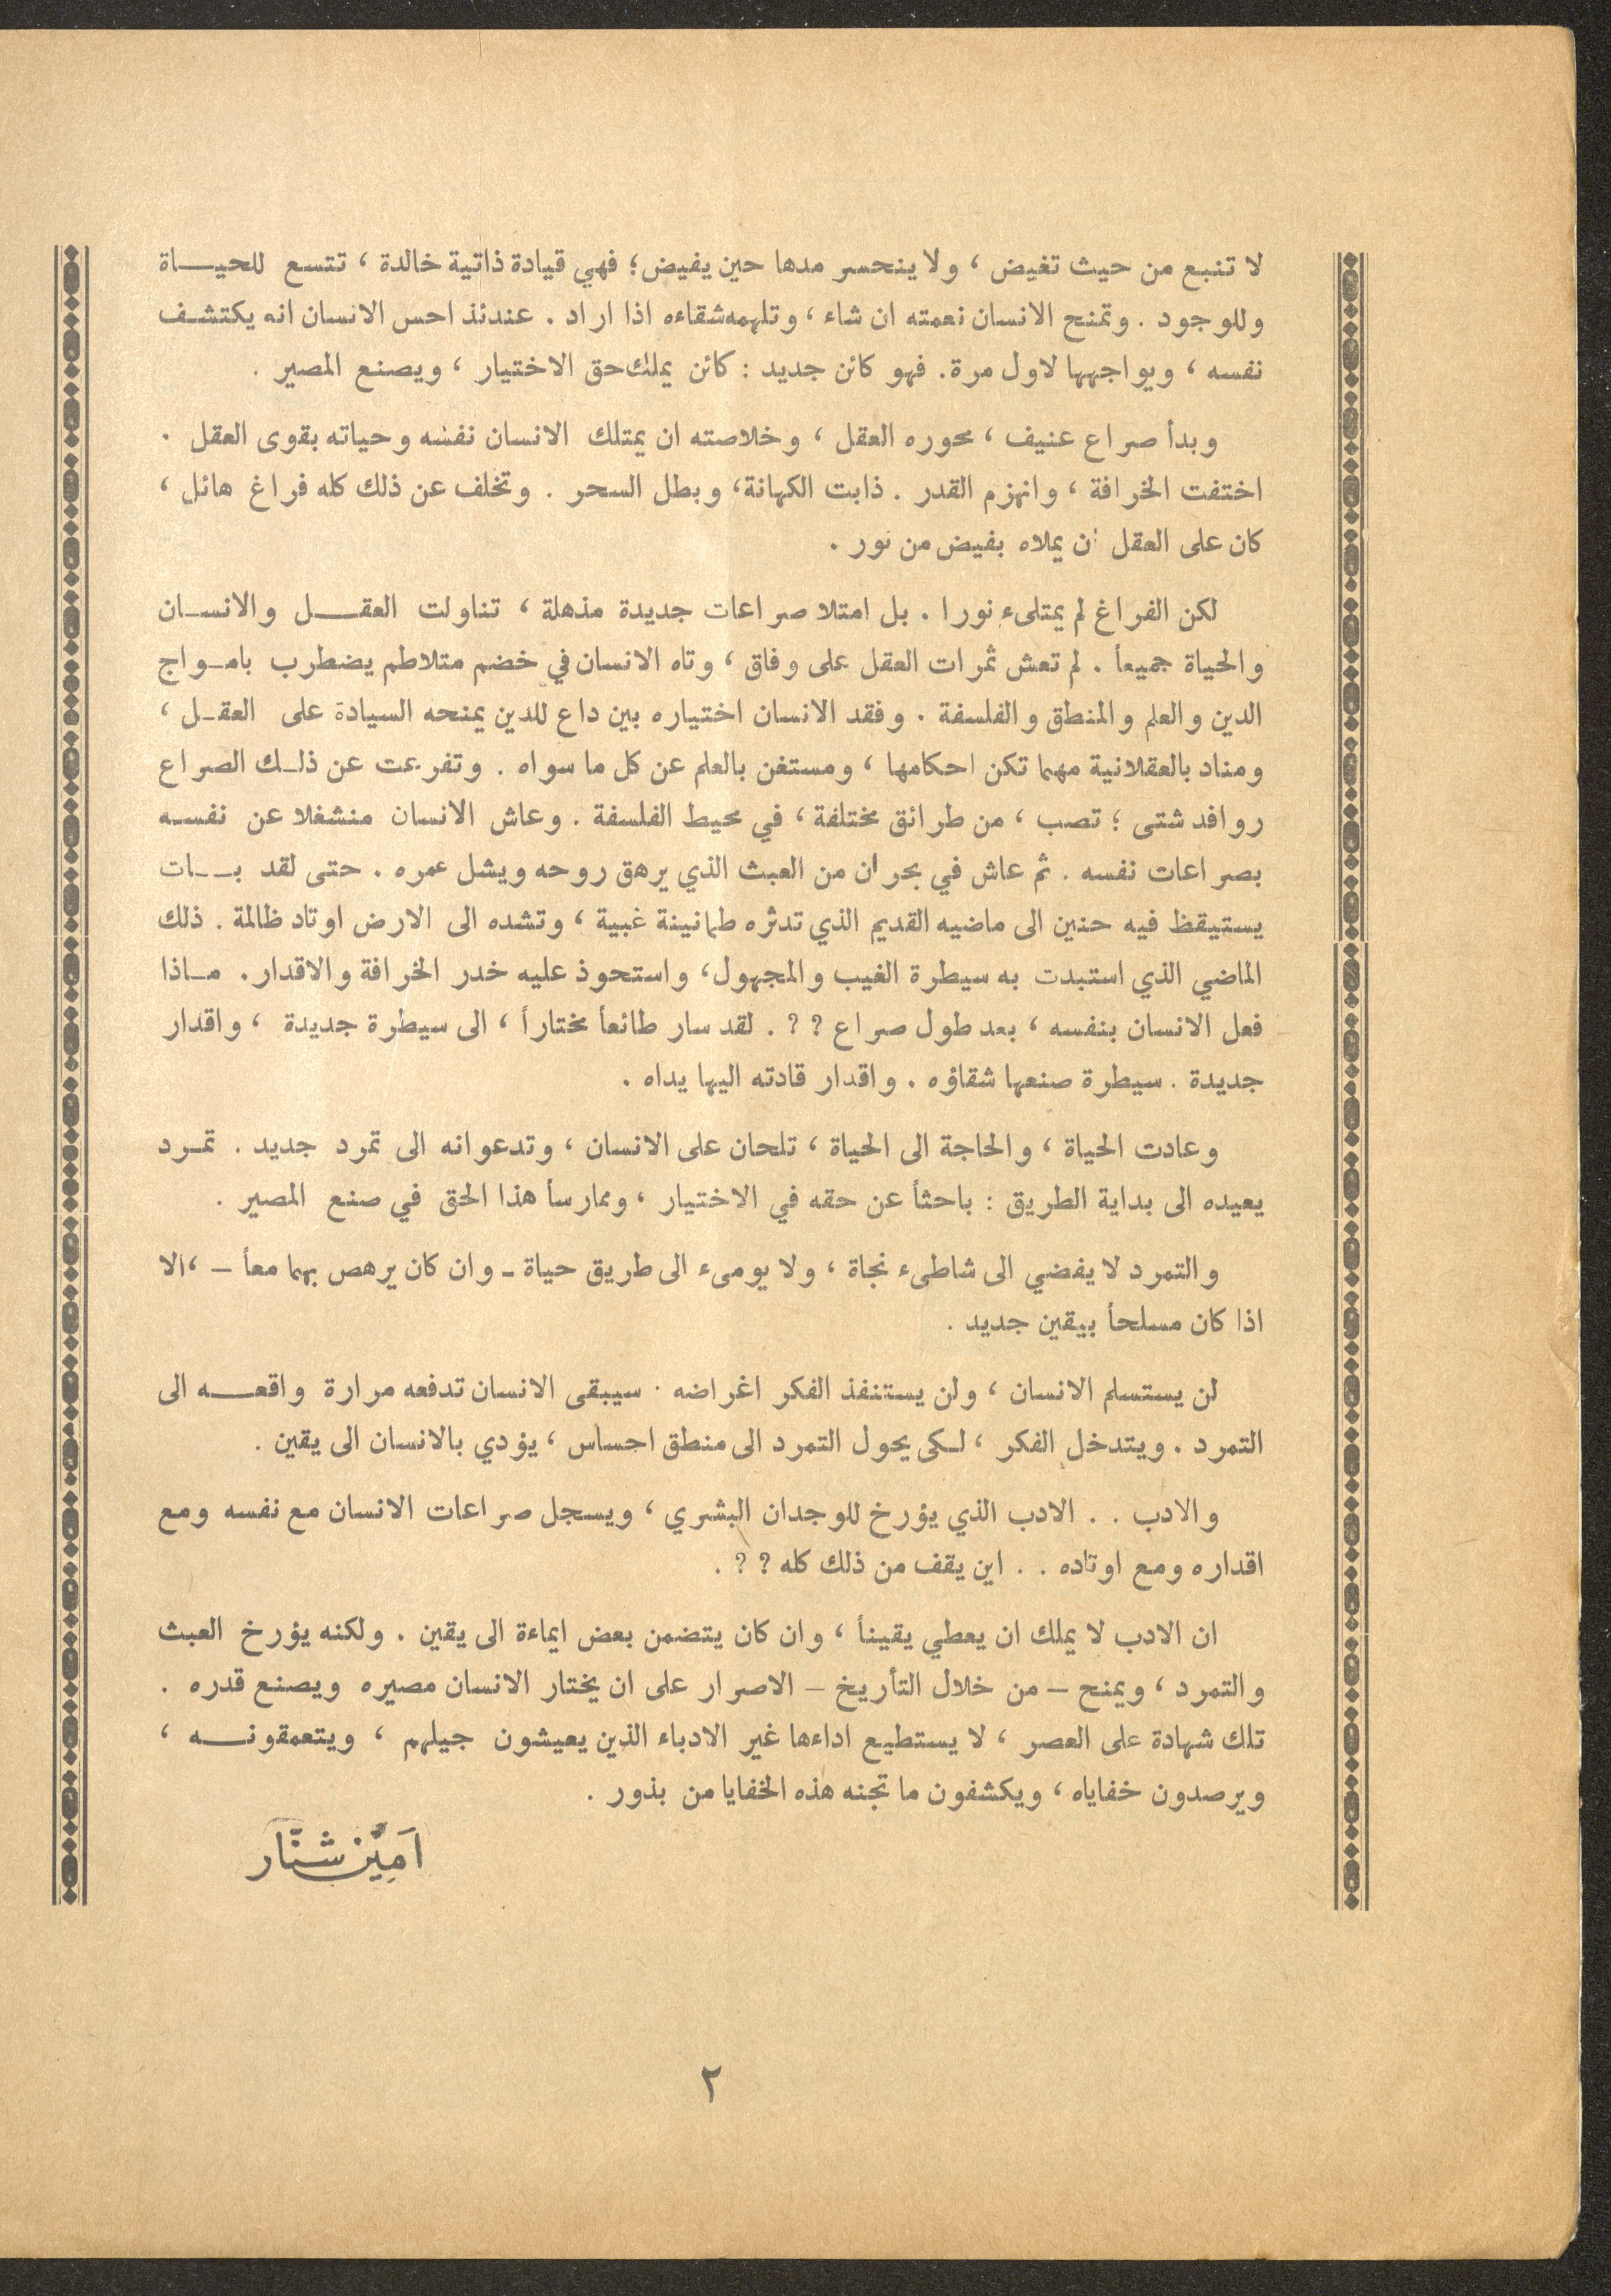 لا تنبع من حيث تغيض ، ولا ينحسر مدها حين يفيض ؛ فهي قيادة ذاتية خالدة ، تتسع للحيـــاة
وللوجود . وتمنح الانسان نعمته ان شاء ، وتلهمه شقاءه اذا اراد . عندئذ احس الانسان انه يكتشـف
نفسه ، ويواجهها لاول مرة. فهو كائن جديد : كائن يملك حق الاختيار ، ويصنع المصير .
وبدأ صراع عنيف ، محوره العقل ، وخلاصته ان يمتلك الانسان نفسه وحياته بقوى العقل .
اختفت الخرافة ، وانهزم القدر . ذابت الكهانة، وبطل السحر . وتخلف عن ذلك كله فراغ هائل ،
كان على العقل ان يملاه بفيض من نور .
لكن الفراغ لم يمتلىء نورا . بل امتلا صراعات جديدة مذهلة ، تناولت العقــــل والانسـان
والحياة جميعاً . لم تعش ثمرات العقل على وفاق ، وتاه الانسان في خضم متلاطم يضطرب بامـواج
الدين والعلم والمنطق والفلسفة . وفقد الانسان اختياره بين داع للدين يمنحه السيادة على العقـل ،
ومناد بالعقلانية مهما تكن احكامها ، ومستغن بالعلم عن كل ما سواه . وتفرعت عن ذلـك الصراع
روافد شتى ؛ تصب ، من طرائق مختلفة ، في محيط الفلسفة . وعاش الانسان منشغلا عن نفسـه
بصراعات نفسه . ثم عاش في بحران من العبث الذي يرهق روحه ويشل عمره . حتى لقد بــات
يستيقظ فيه حنين الى ماضيه القديم الذي تدثره طمانينة غبية ، وتشده الى الارض اوتاد ظالمة . ذلك
الماضي الذي استبدت به سيطرة الغيب والمجهول، واستحوذ عليه خدر الخرافة والاقدار. مـاذا
فعل الانسان بنفسه ، بعد طول صراع ؟ ؟ . لقد سار طائعاً مختاراً ، الى سيطرة جديدة ، واقدار
جديدة . سيطرة صنعها شقاؤه . واقدار قادته اليها يداه .
وعادت الحياة ، والحاجة الى الحياة ، تلحان على الانسان ، وتدعوانه الى تمرد جديد . تمـرد
يعيده الى بداية الطريق : باحثاً عن حقه في الاختيار ، وممارساً هذا الحق في صنع المصير .
والتمرد لا يفضي الى شاطىء نجاة ، ولا يومىء الى طريق حياة ـ وان كان يرهص بهما معاً – ، الا
اذا كان مسلحاً بيقين جديد .
لن يستسلم الانسان ، ولن يستنفذ الفكر اغراضه . سيبقى الانسان تدفعه مرارة واقعـــه الى
التمرد . ويتدخل الفكر ، لـكى يحول التمرد الى منطق احساس ، يؤدي بالانسان الى يقين .
والادب . . الادب الذي يؤرخ للوجدان البشري ، ويسجل صراعات الانسان مع نفسه ومع
اقداره ومع اوتاده . . اين يقف من ذلك كله ؟ ؟ .
ان الادب لا يملك ان يعطي يقيناً ، وان كان يتضمن بعض ايماءة الى يقين . ولكنه يؤرخ العبث
والتمرد ، ويمنح – من خلال التأريخ – الاصرار على ان يختار الانسان مصيره ويصنع قدره .
تلك شهادة على العصر ، لا يستطيع اداءها غير الادباء الذين يعيشون جيلهم ، ويتعمقونـــه ،
ويرصدون خفاياه ، ويكشفون ما تجنه هذه الخفايا من بذور .
اَمِيْن شنّار
٢